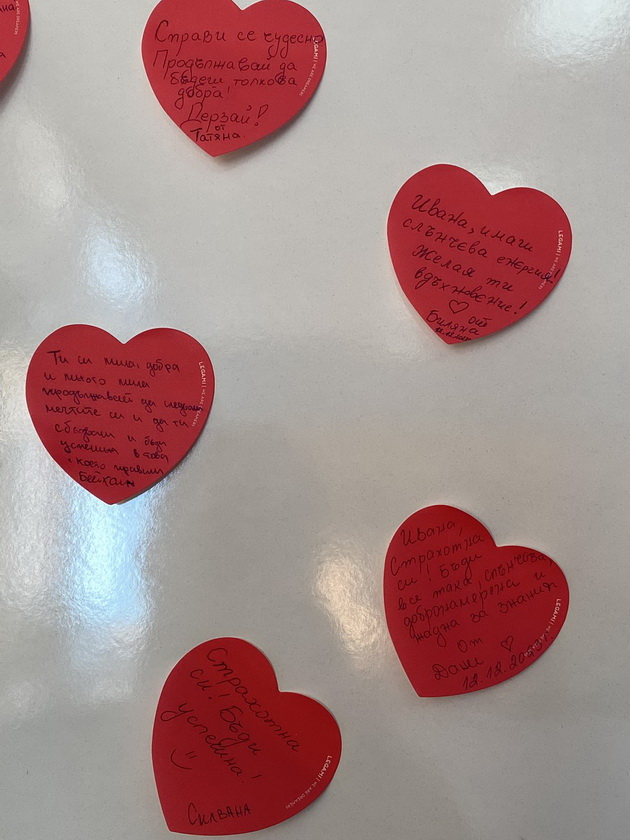 Справи се чудесно
Продължавай да
бъдеш толкова
добра!
Дерзай!
от
Татяна.
LEGAMI
Ивана, имаш
слънчева енергия!
Желая ти
вдъхновение!
♡ от
Биляна
LEGAMI
Ти си мила, добра
и много мила
продължавай да следваш
мечтите си и да ги
сбъдваш и бъди
успешна в това
което правиш
Бейхан
LEGAMI
Ивана,
Страхотна
си! Бъди
все така, слънчева,
добронамерена и
жадна за знания
От ♡
Доши
12.12.2023г.
LEGAMI
Страхотна
си! Бъди
успешна!
Силвана
LEGAMI